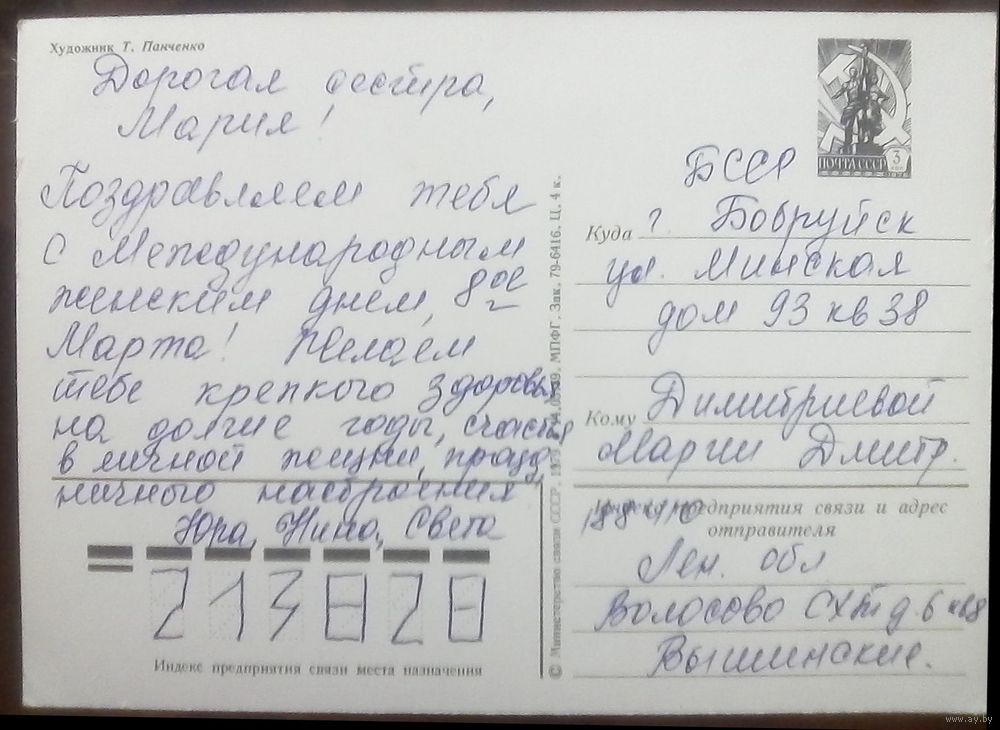 Художник Т. Панченко
Дорогая сестра,
Мария!
Поздравляем тебя
с Международным
женским днем, 8ое
Марта! Желаем
тебе крепкого здоровья
на долгие годы, счастья
в личной жизни, празд
ничного настроения
Юра, Нина, Света
213828
Индекс предприятия связи места назначения
© Министерство связи СССР. МПФГ. Зак. 79-6416. Ц. 4 к.
ПОЧТА СССР 3
БССР
Куда г. Бобруйск
ул. Минская
дом 93 кв 38
Кому Димитриевой
Марии Дмитр.
Индекс предприятия связи и адрес
отправителя
Лен. обл
Волосово СХТ д. 6 кв8
Вышинские.
www.ay.by